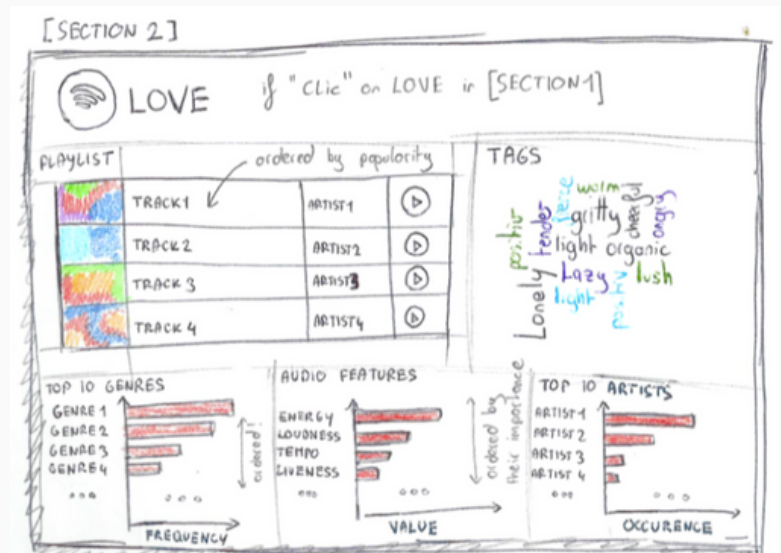 [SECTION 2]
LOVE if "CLic" on LOVE in [SECTION 1]
PLAYLIST
ordered by popularity
TRACK1 ARTIST1
TRACK 2 ARTIST2
TRACK 3 ARTIST3
TRACK 4 ARTIST4
TAGS
warm
fierce
cheerful
angry
gritty
tender
positiv
light organic
Lonely
Lazy
lush
light
positiv
TOP 10 GENRES
GENRE 1
GENRE 2
GENRE 3
GENRE 4
ooo
ooo
ordered!
FREQUENCY
AUDIO FEATURES
ENERGY
LOUDNESS
TEMPO
LIVENESS
ooo
ooo
ordered by
their importance
VALUE
TOP 10 ARTISTS
ARTIST 1
ARTIST 2
ARTIST 3
ARTIST 4
ooo
ooo
OCCURENCE